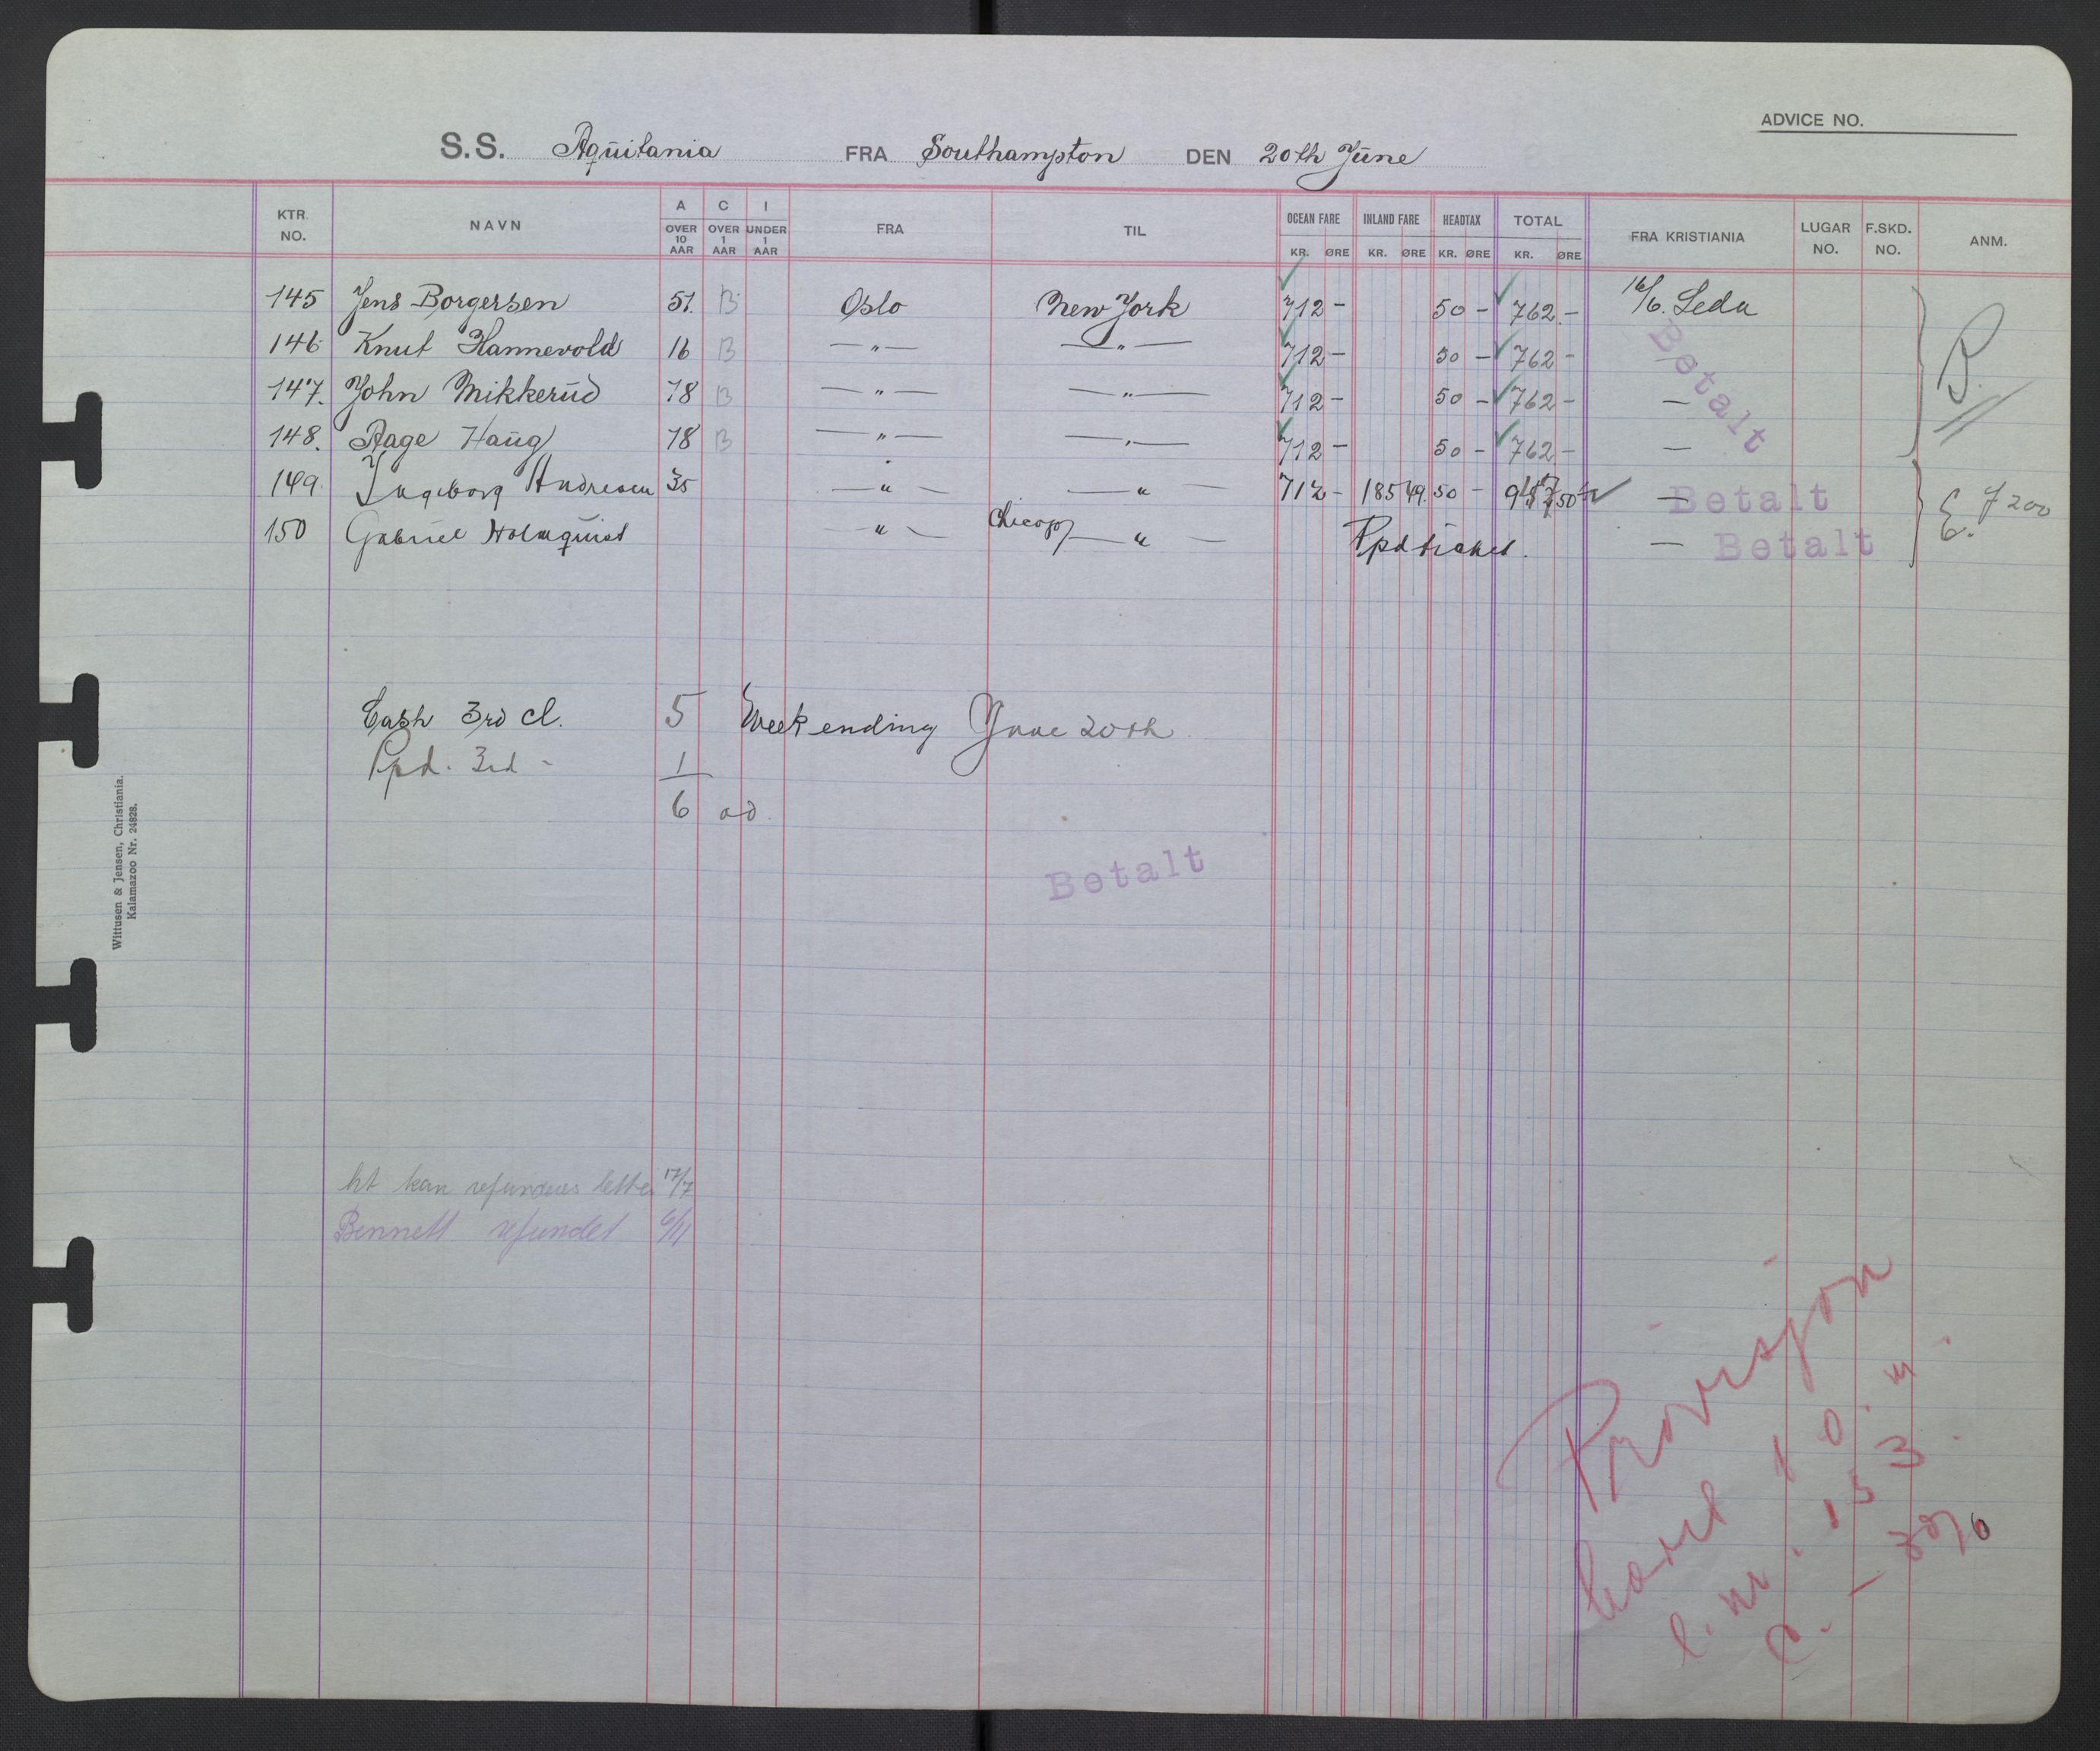 ADVICE NO.
S.S. Aquitania FRA Southampton DEN 20th June
KTR. NO. NAVN A OVER 10 AAR C OVER 1 AAR I UNDER 1 AAR FRA TIL OCEAN FARE KR. ØRE INLAND FARE KR. ØRE HEADTAX KR. ØRE TOTAL KR. ØRE FRA KRISTIANIA LUGAR NO. F.SKD. NO. ANM.
145 Jens Borgersen 51. B Oslo New York 712 - 50 - 762 - 16/6. Leda
146 Knut Hannevold 16 B — " — — " — 712 - 50 - 762 - Betalt P.
147. John Mikkerud 18 B — " — — " — 712 - 50 - 762 - —
148. Aage Haug 18 B — " — — " — 712 - 50 - 762 - —
149. Ingeborg Andresen 35 — " — — " — 712 - 185 49. 50 - 50 — Betalt E. 7200
150 Gabriel Holmquist — " — Chicago — " — Ppd ticket. — Betalt
Cash 3rd cl. 5 Week ending June 20th
Ppd. 3rd - 1
6 ad.
Betalt
Wittusen & Jensen, Christiania.
Kalamazoo Nr. 24828.
kan refunderes 17/7
Bennett refundet 6/11
Provisjon
10
153